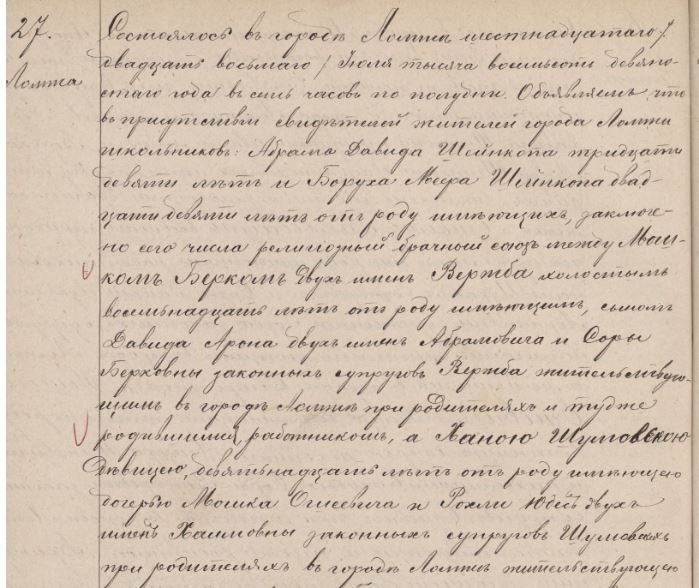 27.
Ломжа
Состоялось въ городѣ Ломжѣ шестнадцатаго /
двадцать восьмаго / Іюля тысяча восемьсотъ девяно-
стаго года въ семь часовъ по полудни. Объявляемъ, что
въ присутствіи свидѣтелей жителей города Ломжи
школьниковъ: Абрама Давида Шейнкопа тридцати
девяти лѣтъ и Боруха Меера Шейнкопа двад-
цати девяти лѣтъ отъ роду имѣющихъ, заключе-
но сего числа религіозный брачный союзъ между Мош-
комъ Беркомъ двухъ именъ Вержба холостымъ
восемьнадцать лѣтъ отъ роду имѣющимъ, сыномъ
Давида Арона двухъ именъ Абрамовича и Соры
Берковны законныхъ супруговъ Вержба жительствую-
щимъ въ городѣ Ломжѣ при родителяхъ и тудже
родившимся, работникомъ, а Ханою Шумовскою
Дѣвицею, девятьнадцать лѣтъ отъ роду имѣющею
дочерью Мошка и Рохли двухъ
именъ Хаимовны законныхъ супруговъ Шумовскихъ
при родителяхъ въ городѣ Ломжѣ жительствующею